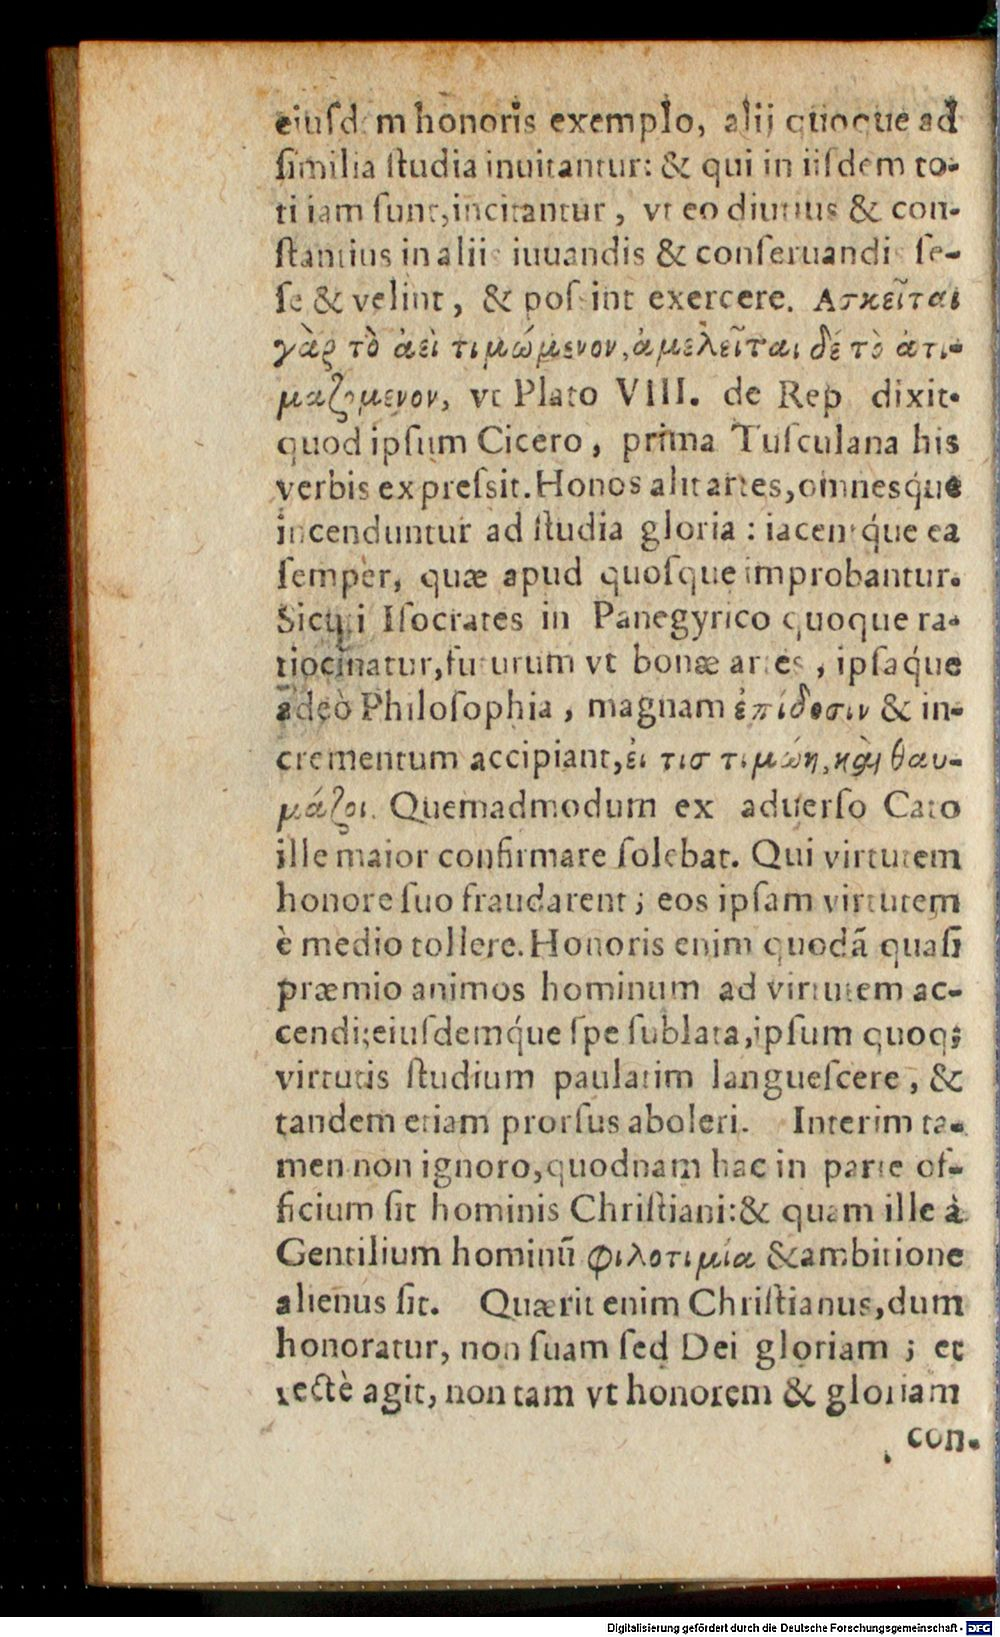 eiuſdem honoris exemplo, alij quoque ad
ſimilia ſtudia inuitantur: & qui in iiſdem to-
ti iam ſunt, incitantur, vt eo diutius & con-
ſtantius in aliis iuuandis & conſeruandis ſe-
ſe & velint, & poſsint exercere. Ασκεῖται
γὰρ τὸ ἀεὶ τιμώμενον, ἀμελεῖται δὲ τὸ ἀτι-
μαζόμενον, vt Plato VIII. de Rep dixit.
quod ipſum Cicero, prima Tuſculana his
verbis expreſsit. Honos alit artes, omnesq́ue
incenduntur ad ſtudia gloria: iacentq́ue ea
ſemper, quæ apud quoſque improbantur.
Sicuti Iſocrates in Panegyrico quoque ra-
tiocinatur, futurum vt bonæ artes, ipſaq́ue
adeò Philoſophia, magnam ἐπίδοσιν & in-
crementum accipiant, ἐι τισ τιμώη, καὶ θαυ-
μάζοι. Quemadmodum ex aduerſo Cato
ille maior confirmare ſolebat. Qui virtutem
honore ſuo fraudarent; eos ipſam virtutem
è medio tollere. Honoris enim quodã quaſi
præmio animos hominum ad virtutem ac-
cendi; eiuſdemq́ue ſpe ſublata, ipſum quoq;
virtutis ſtudium paulatim langueſcere, &
tandem etiam prorſus aboleri. Interim ta-
men non ignoro, quodnam hac in parte of-
ficium ſit hominis Chriſtiani: & quam ille à
Gentilium hominũ φιλοτιμία & ambitione
alienus ſit. Quærit enim Chriſtianus, dum
honoratur, non ſuam ſed Dei gloriam; et
rectè agit, non tam vt honorem & gloriam
con-
Digitalisierung gefördert durch die Deutsche Forschungsgemeinschaft - DFG